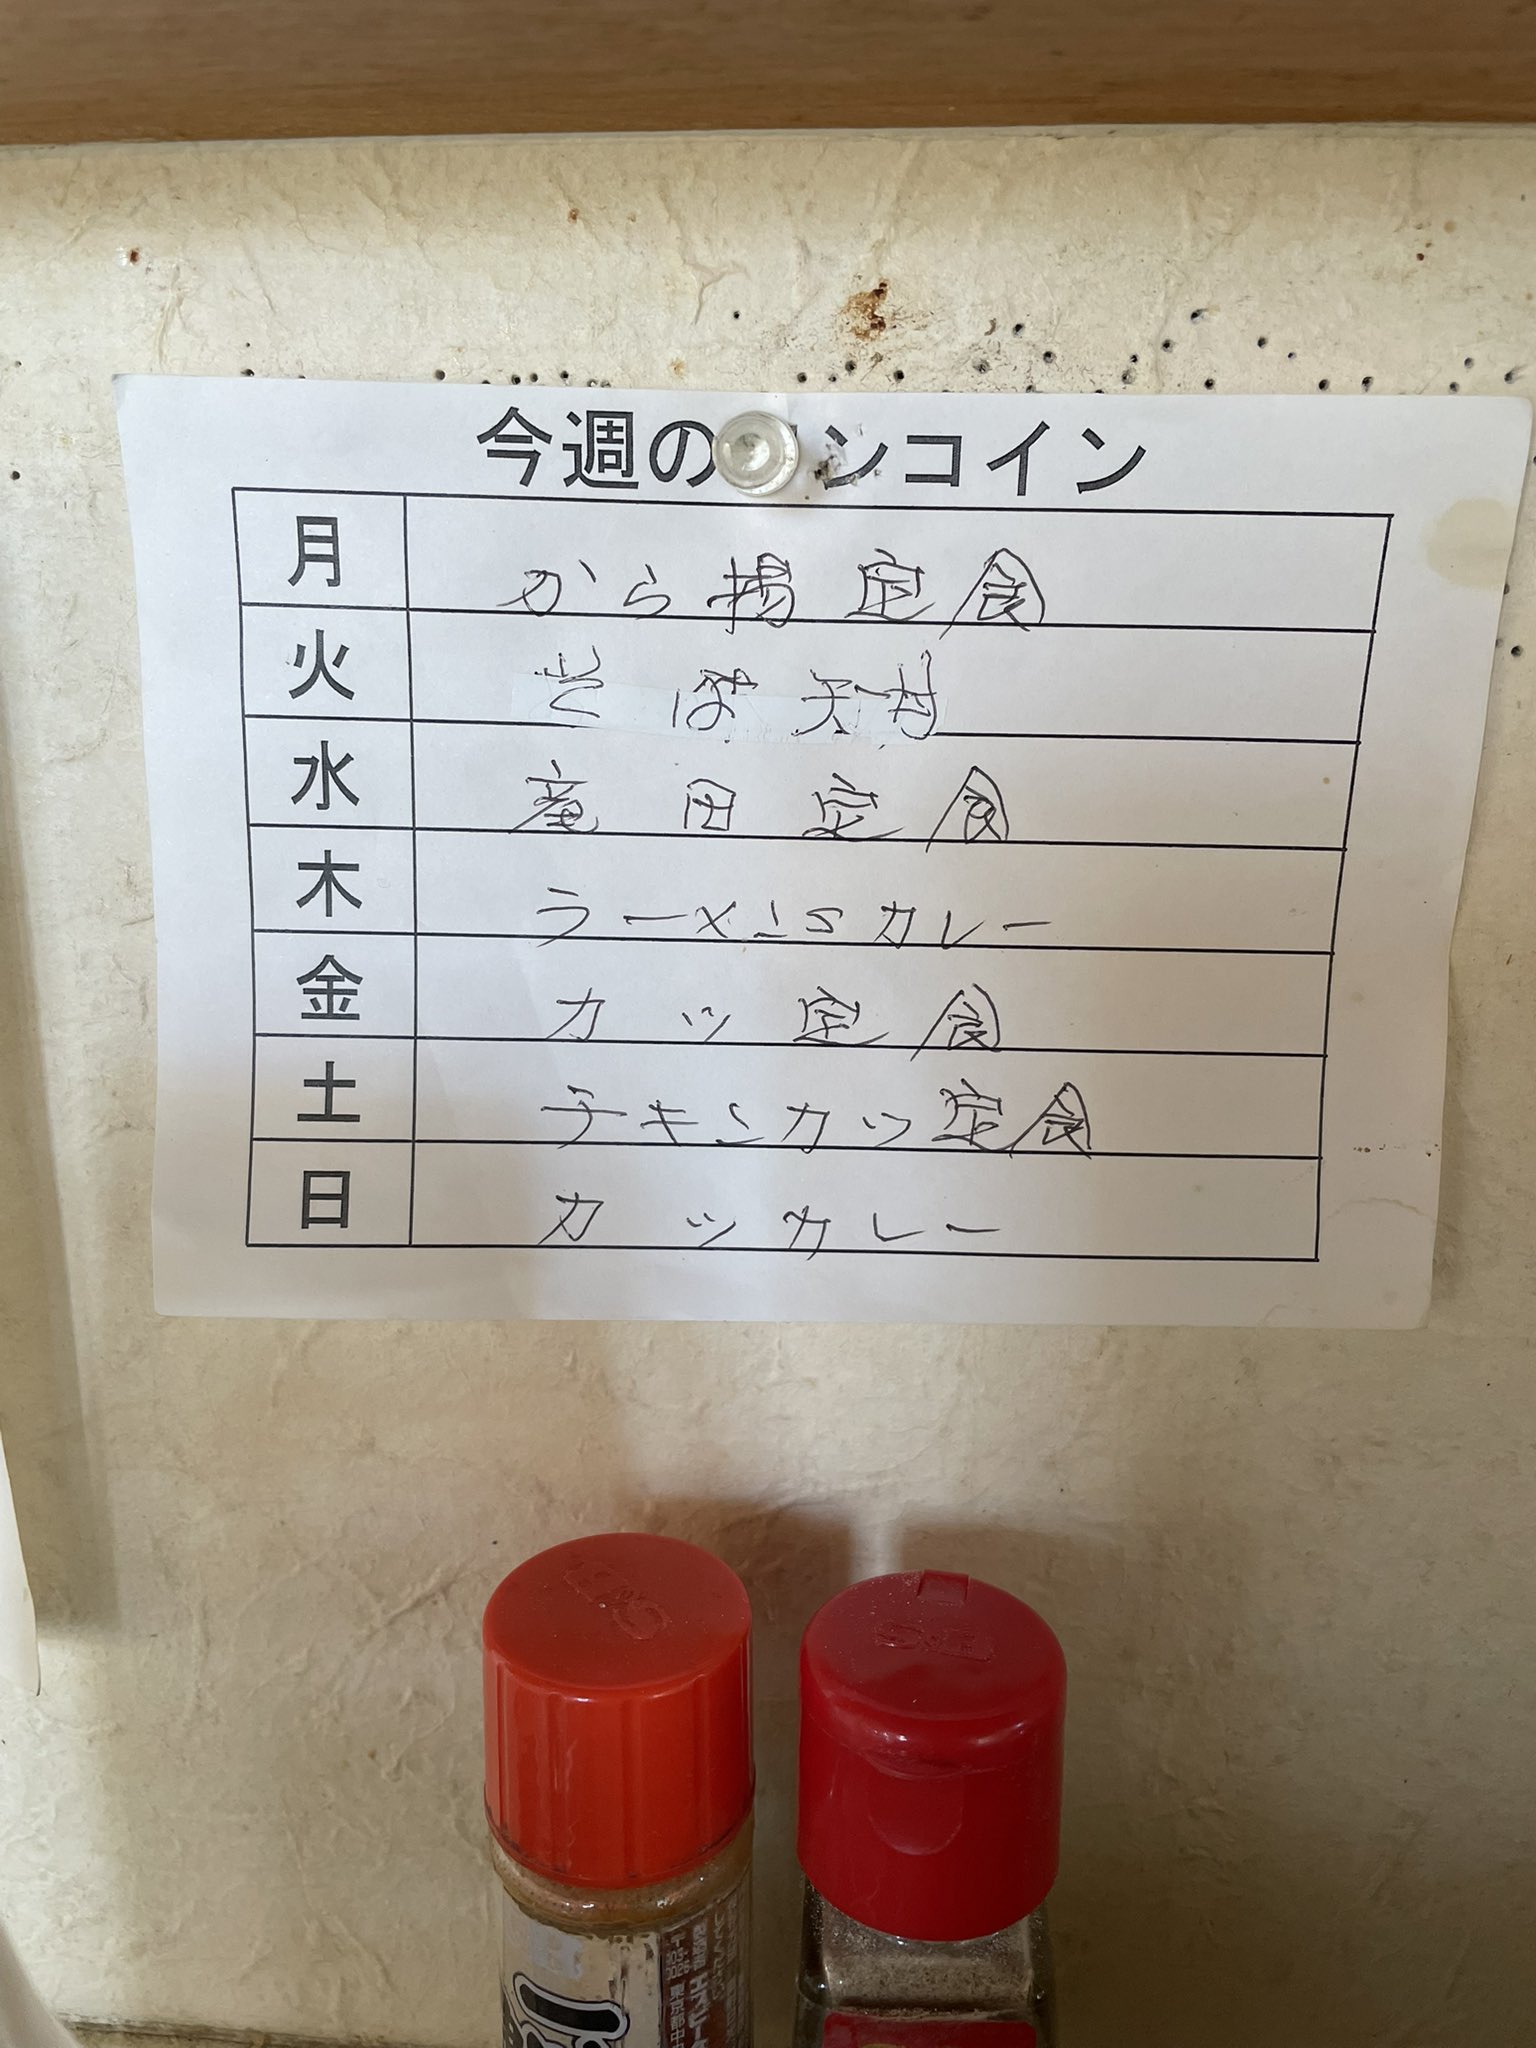 今週のワンコイン
月 から揚定食
火 そば定食
水 竜田定食
木 ラーメンSカレー
金 カツ定食
土 チキンカツ定食
日 カツカレー
S&B
S&B